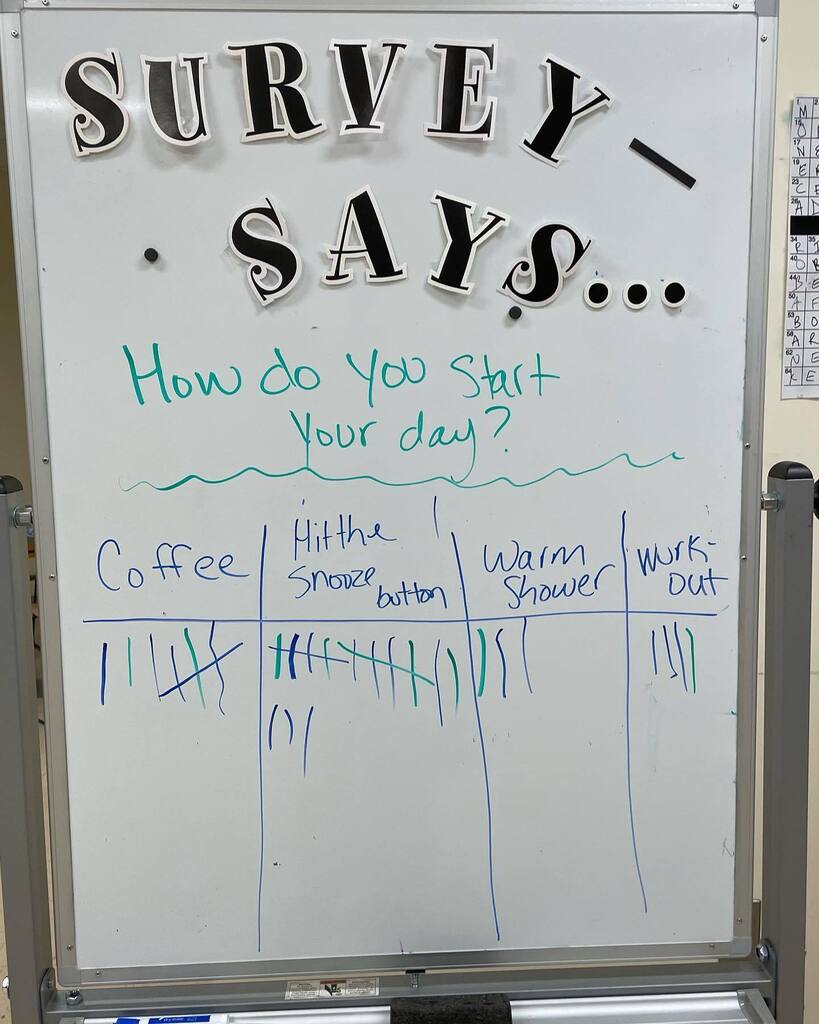 SURVEY
SAYS...
How do you start
your day?
Coffee
Hit the
snooze
button
Warm
Shower
Work-
out